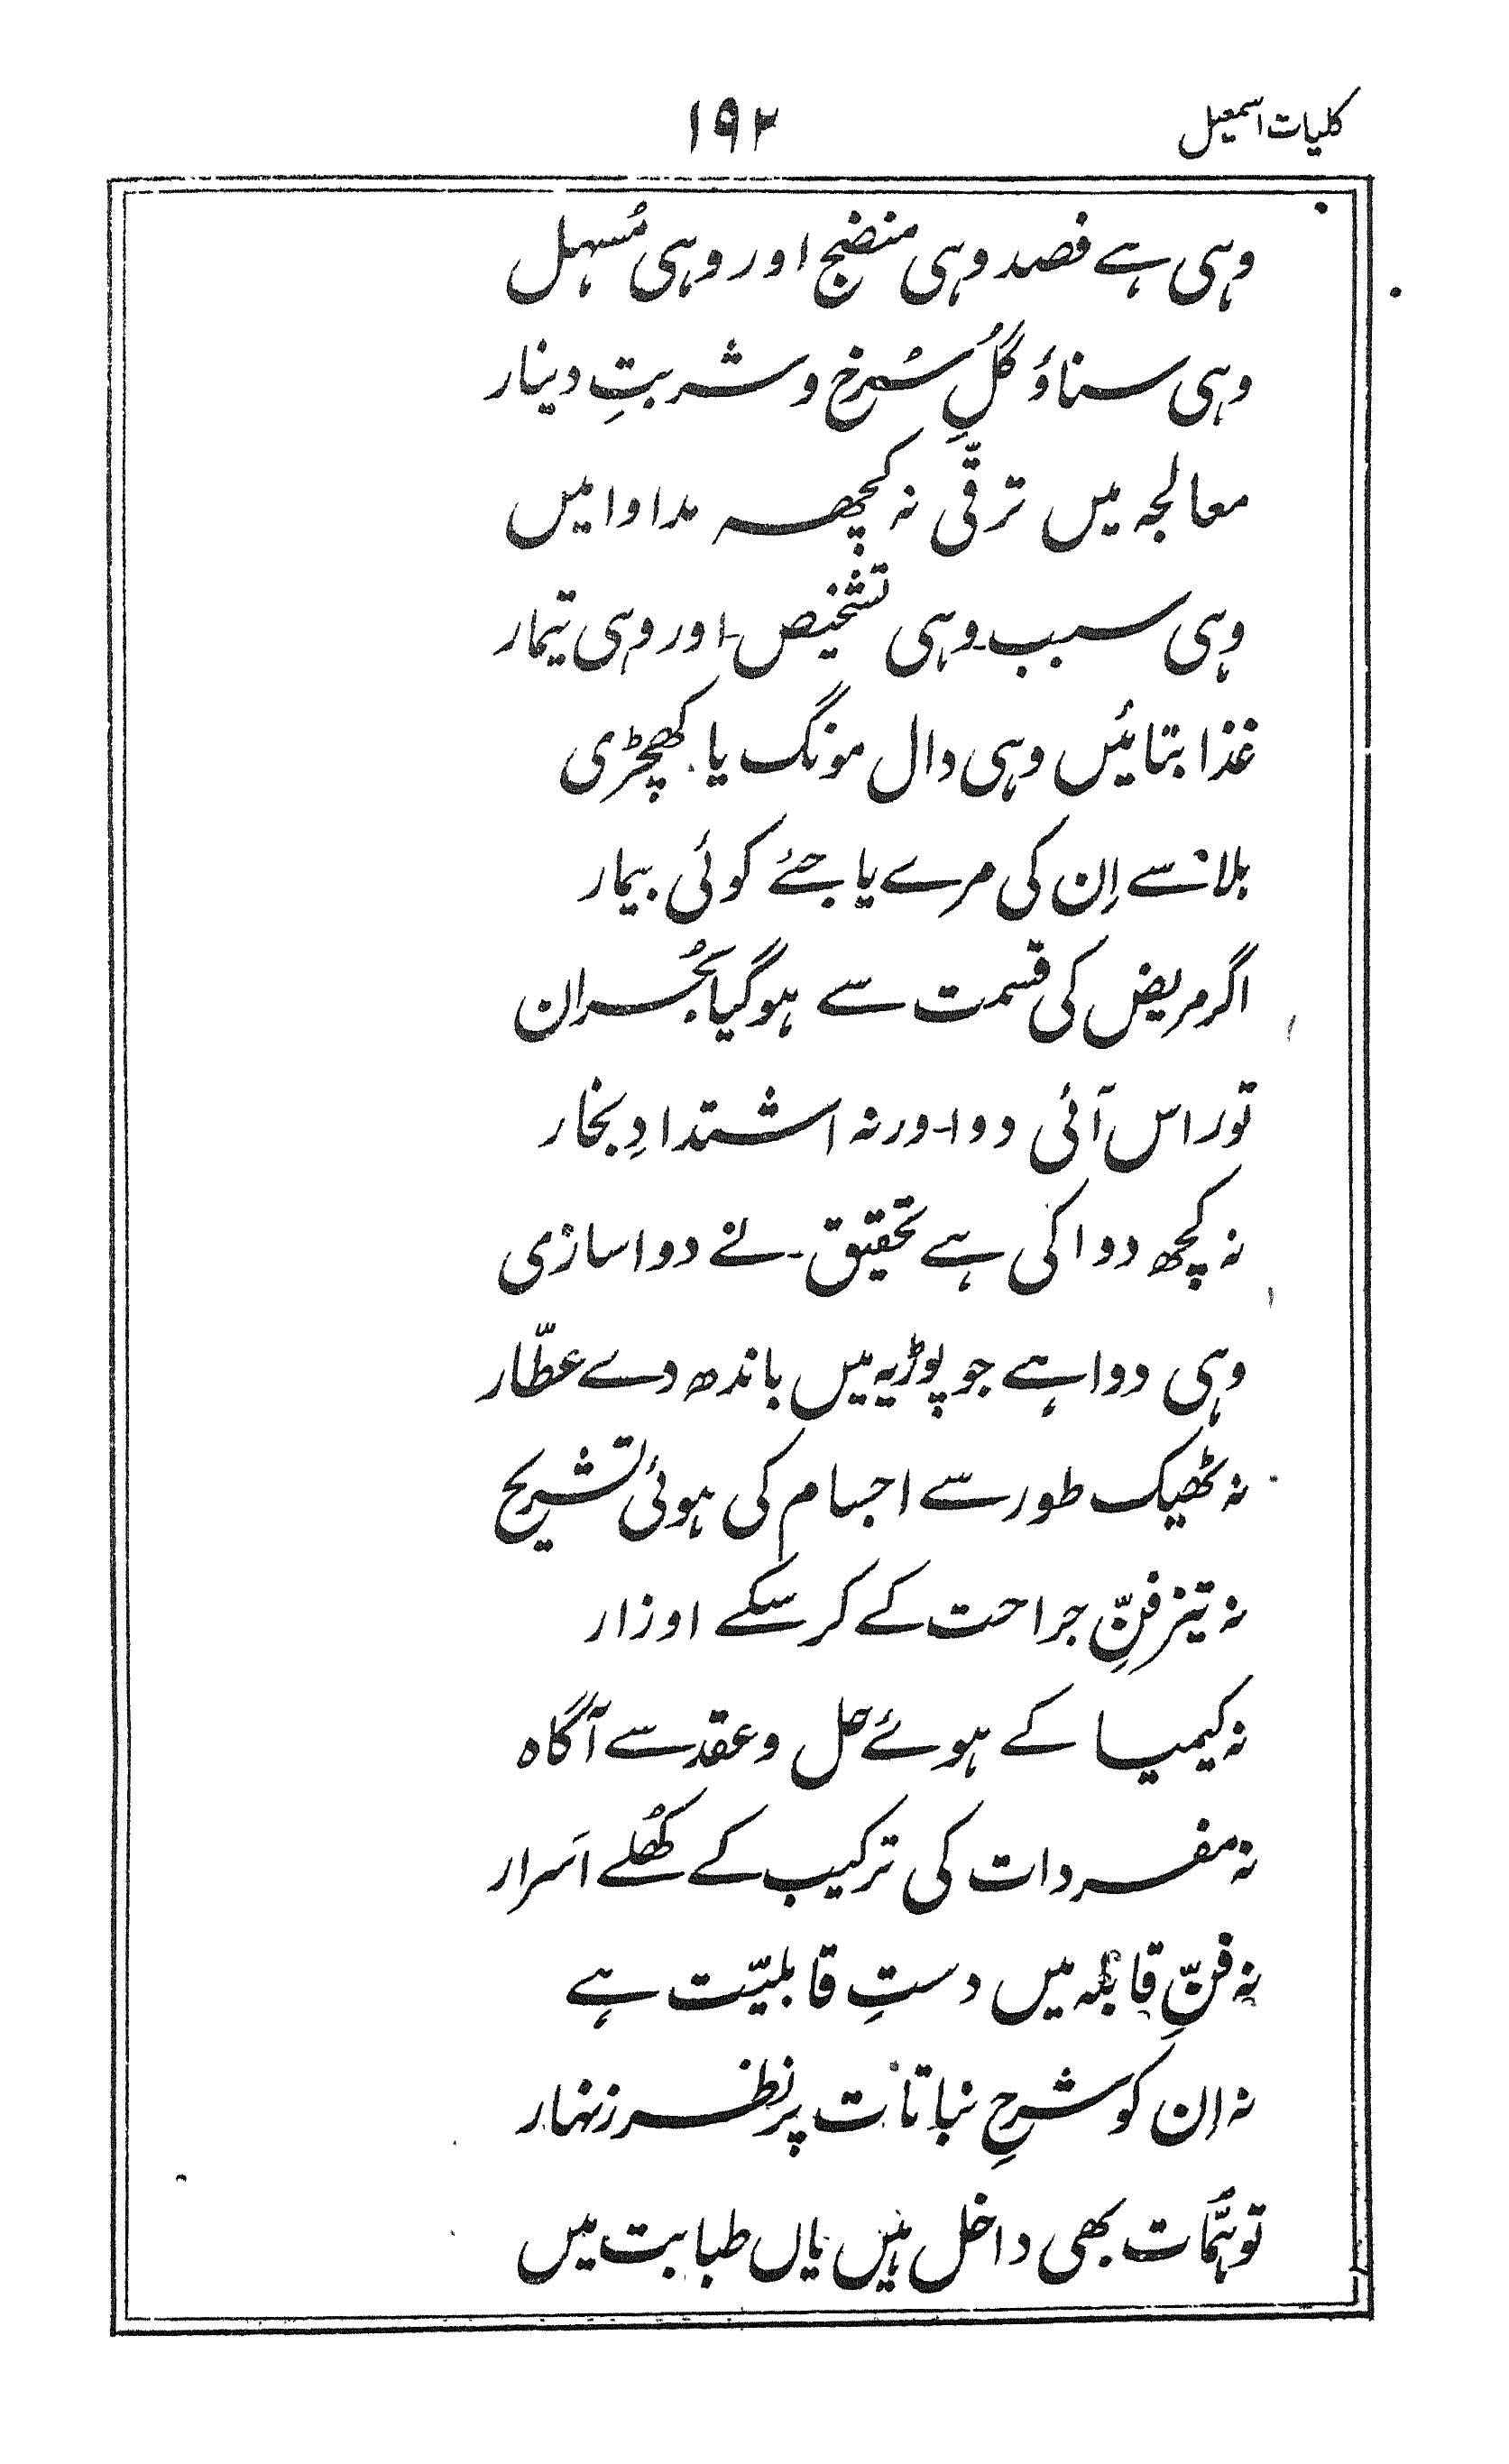 کلیات اسمعیل
۱۹۲
وہی ہے فصد وہی منضج اور وہی مُسہل
وہی سناؤ گُلِ سُرخ و شربتِ دینار
معالجہ میں ترقّی نہ کچھ مداوا میں
وہی سبب۔ وہی تشخیص۔ اور وہی تیمار
غذا بتائیں وہی دال مونگ یا کھچڑی
بلا سے اِن کی مرے یا جئے کوئی بیمار
اگر مریض کی قسمت سے ہوگیا بُحران
تو راس آئی دوا۔ ورنہ اشتدادِ بخار
نہ کچھ دوا کی ہے تحقیق۔ نے دواسازی
وہی دوا ہے جو پوڑیہ میں باندھ دے عطّار
نہ ٹھیک طور سے اجسام کی ہوئی تشریح
نہ تیز فنِّ جراحت کے کر سکے اوزار
نہ کیمیا کے ہوئے حل و عقد سے آگاہ
نہ مفردات کی ترکیب کے کُھلے اَسرار
نہ فنِّ قابلہ میں دستِ قابلیّت ہے
نہ اِن کو شرحِ نباتات پر نظر زنہار
توہُّمات بھی داخل ہیں یاں طبابت میں